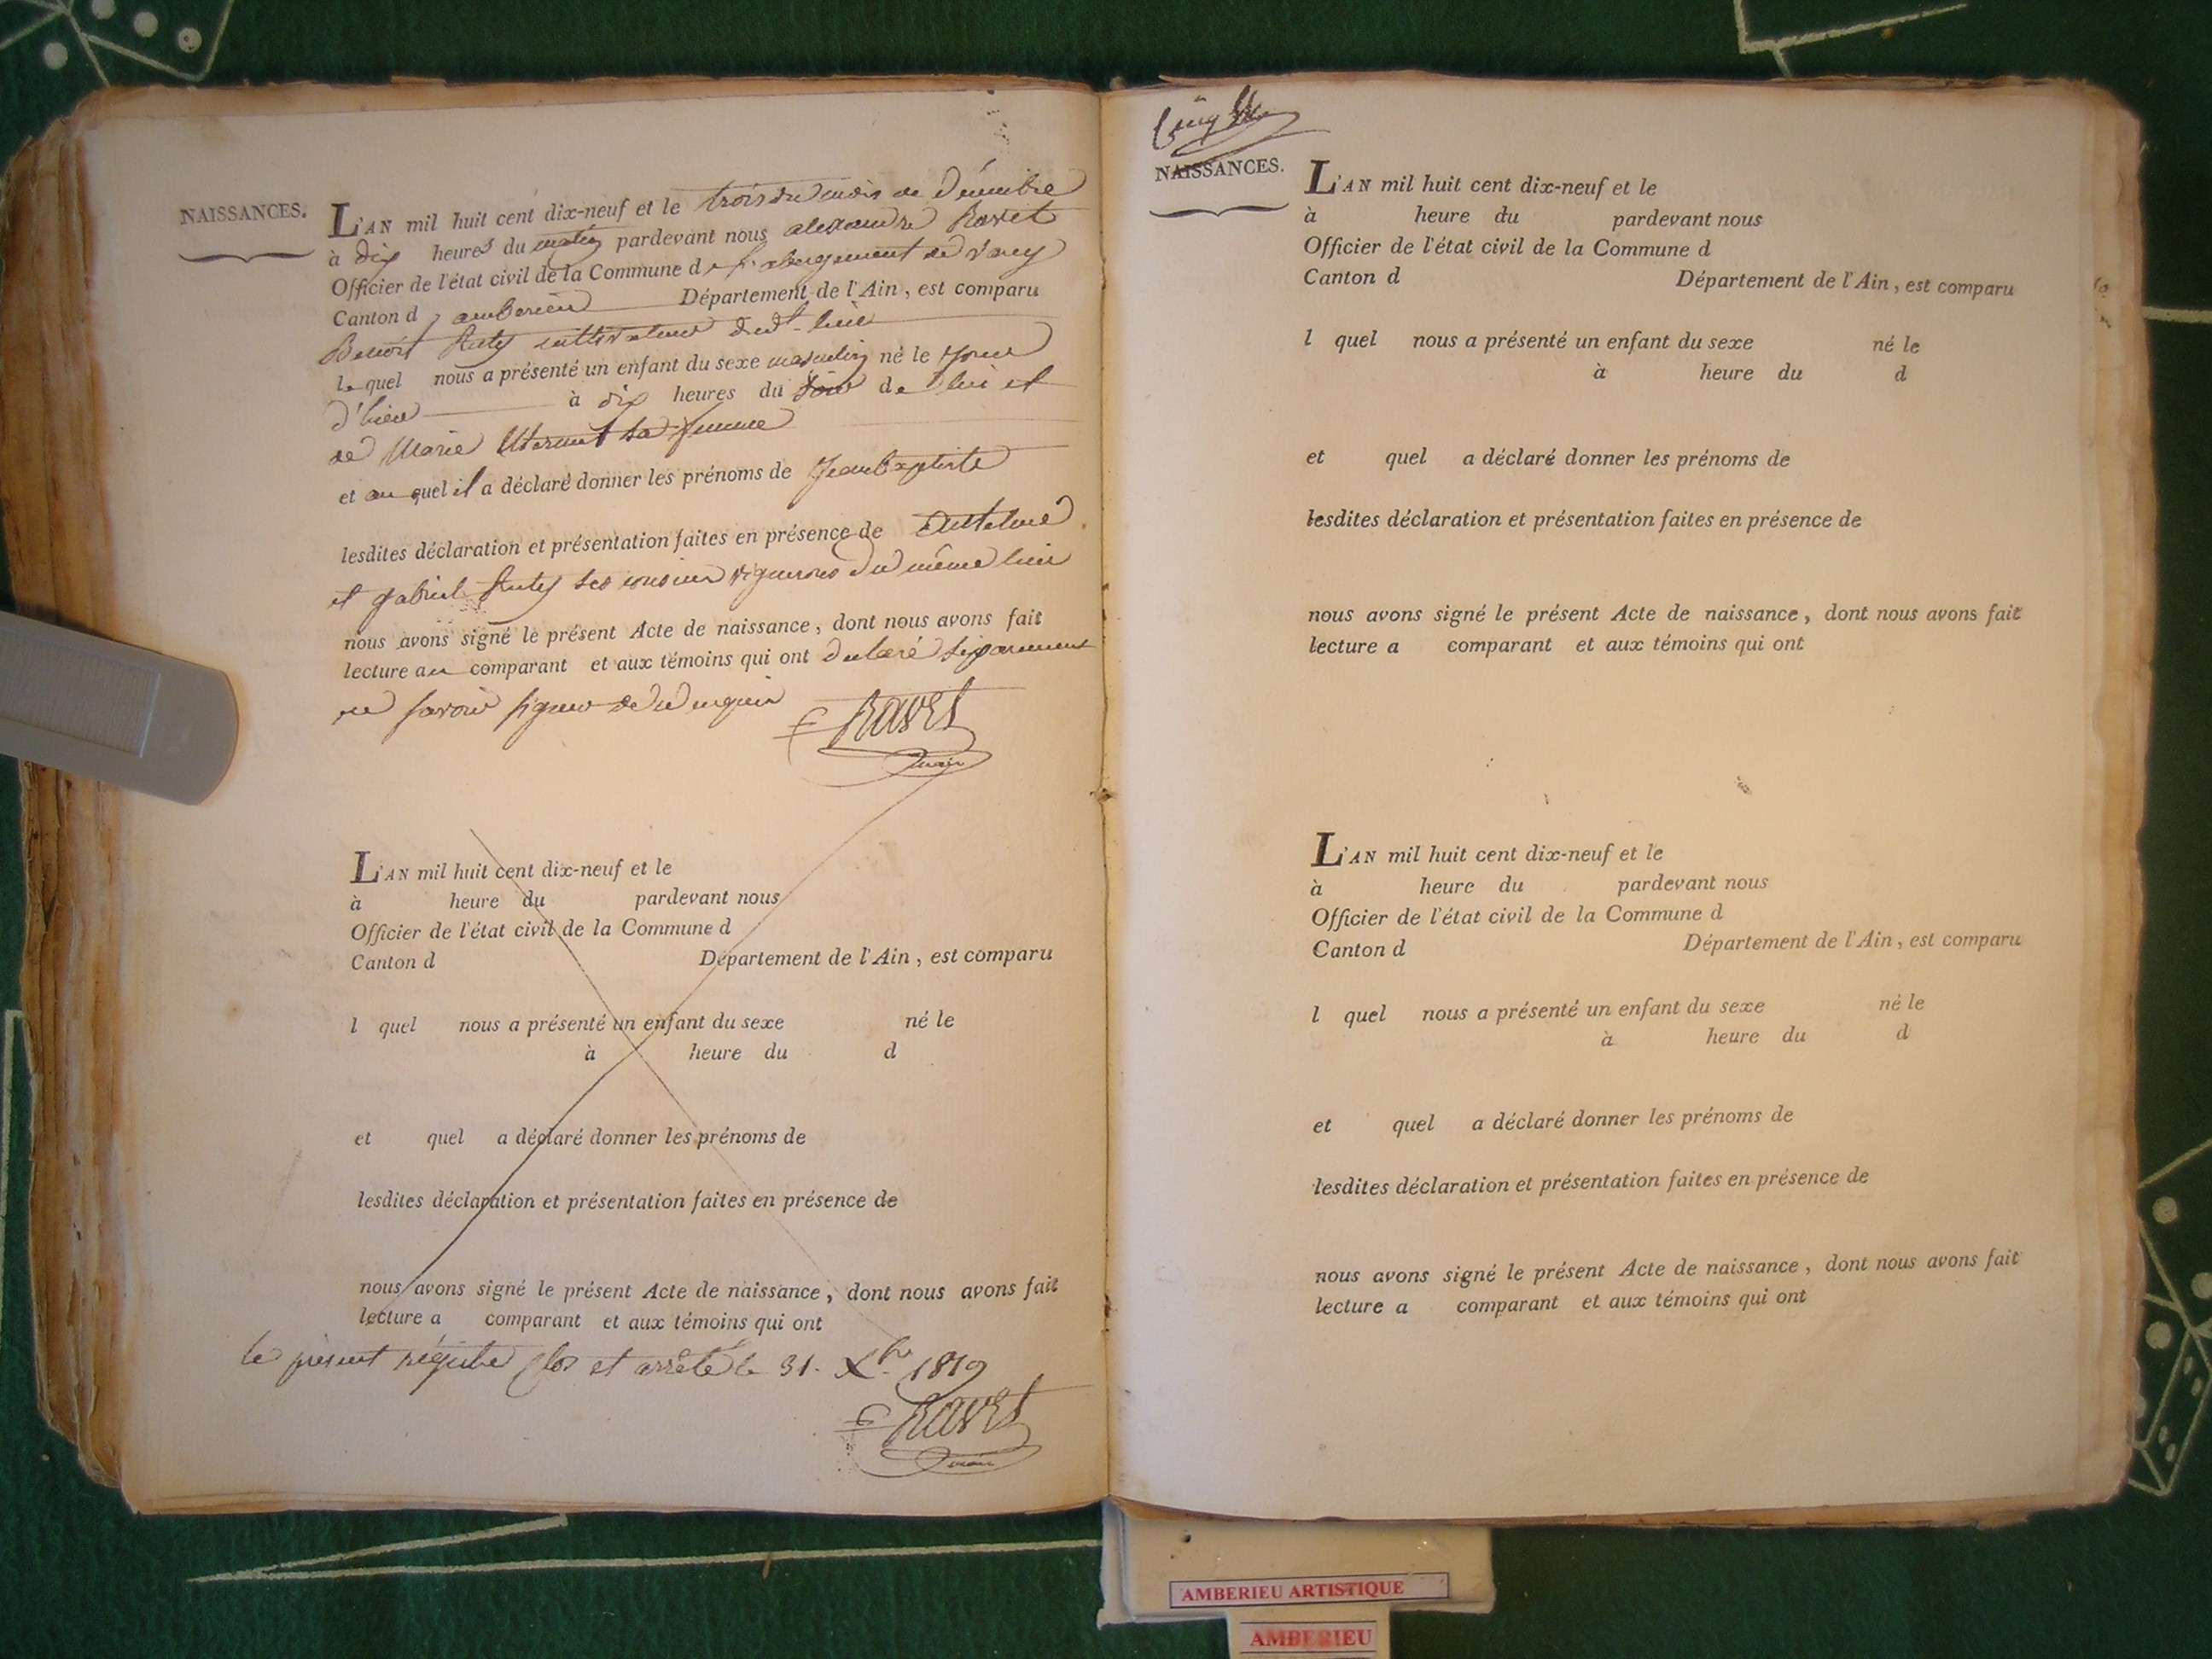 NAISSANCES.
L'AN mil huit cent dix-neuf et le trois du mois de Décembre
à dix heures du matin pardevant nous alexandre Ravet
Officier de l'état civil de la Commune de l'abergement de varey
Canton d'amberieu Département de l'Ain, est comparu
Benoit cultivateur dudt. lieu
lequel nous a présenté un enfant du sexe masculin né le jour
d'hier à dix heures du soir de lui et
de Marie sa femme
et auquel il a déclaré donner les prénoms de Jean baptiste
lesdites déclaration et présentation faites en présence de Anthelme
et gabriel ses cousins vignerons du même lieu
nous avons signé le présent Acte de naissance, dont nous avons fait
lecture au comparant et aux témoins qui ont déclaré séparement
ne savoir signer de ce requis
Ravet
maire
L'AN mil huit cent dix-neuf et le
à heure du pardevant nous
Officier de l'état civil de la Commune d
Canton d Département de l'Ain, est comparu
l quel nous a présenté un enfant du sexe né le
à heure du d
et quel a déclaré donner les prénoms de
lesdites déclaration et présentation faites en présence de
nous avons signé le présent Acte de naissance, dont nous avons fait
lecture a comparant et aux témoins qui ont
le présent régistre clos et arrêté le 31. Xbre 1819
Ravet
maire
NAISSANCES.
L'AN mil huit cent dix-neuf et le
à heure du pardevant nous
Officier de l'état civil de la Commune d
Canton d Département de l'Ain, est comparu
l quel nous a présenté un enfant du sexe né le
à heure du d
et quel a déclaré donner les prénoms de
lesdites déclaration et présentation faites en présence de
nous avons signé le présent Acte de naissance, dont nous avons fait
lecture a comparant et aux témoins qui ont
L'AN mil huit cent dix-neuf et le
à heure du pardevant nous
Officier de l'état civil de la Commune d
Canton d Département de l'Ain, est comparu
l quel nous a présenté un enfant du sexe né le
à heure du d
et quel a déclaré donner les prénoms de
lesdites déclaration et présentation faites en présence de
nous avons signé le présent Acte de naissance, dont nous avons fait
lecture a comparant et aux témoins qui ont
AMBERIEU ARTISTIQUE
AMBERIEU